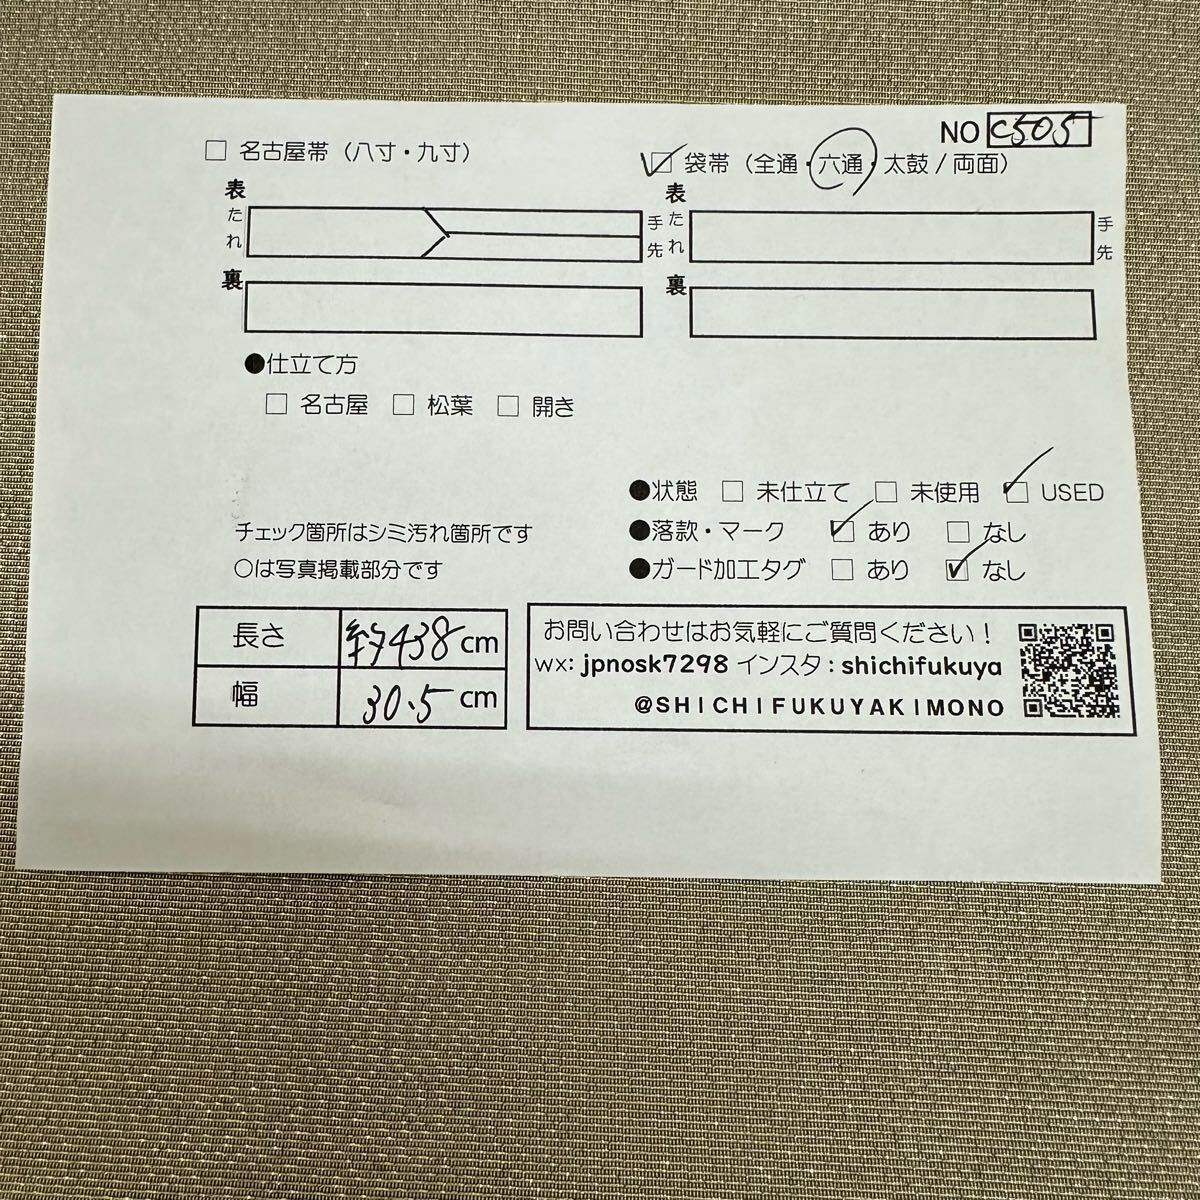 NO C505
□ 名古屋帯（八寸・九寸）
☑ 袋帯（全通・六通・太鼓/両面）
表
たれ
手先
裏
表
たれ
手先
裏
●仕立て方
□ 名古屋 □ 松葉 □ 開き
●状態 □ 未仕立て □ 未使用 ☑ USED
●落款・マーク ☑ あり □ なし
●ガード加工タグ □ あり ☑ なし
チェック箇所はシミ汚れ箇所です
○は写真掲載部分です
長さ 約438cm
幅 30.5cm
お問い合わせはお気軽にご質問ください！
wx: jpnosk7298 インスタ: shichifukuya
@SHICHIFUKUYAKIMONO